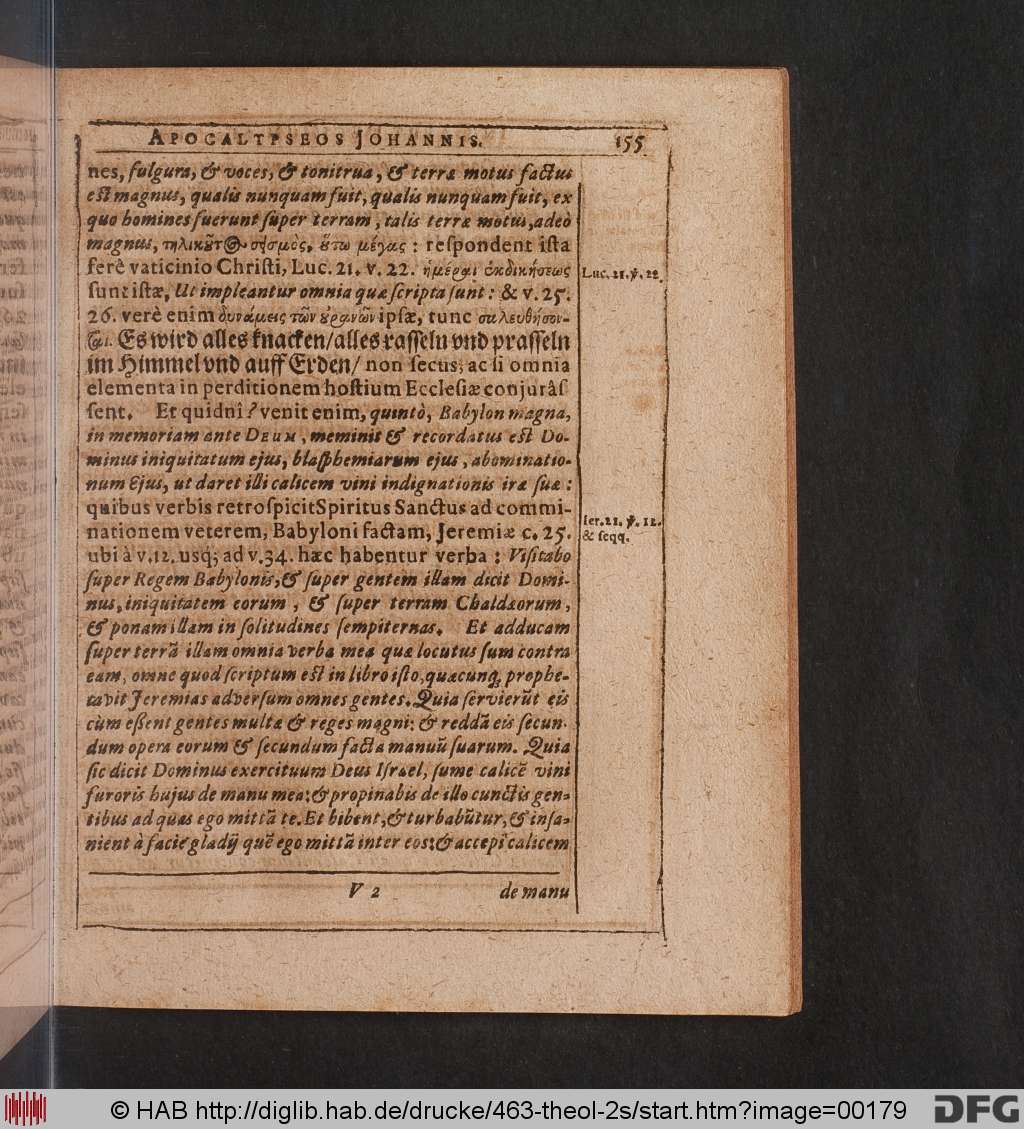 APOCALYPSEOS JOHANNIS. 155
nes, fulgura, & voces, & tonitrua, & terræ motus factus
est magnus, qualis nunquam fuit, qualis nunquam fuit, ex
quo homines fuerunt super terram, talis terræ motus, adeò
magnus, τηλικοῦτος σεισμὸς, οὕτω μέγας : respondent ista
ferè vaticinio Christi, Luc. 21. v. 22. ἡμέραι ἐκδικήσεως
Luc. 21. ℣. 22.
sunt istæ, Ut impleantur omnia quæ scripta sunt : & v. 25.
26. verè enim δυνάμεις τῶν οὐρανῶν ipsæ, tunc σαλευθήσον-
ται. Es wird alles knacken/alles rasseln vnd prasseln
im Himmel vnd auff Erden/ non secus, ac si omnia
elementa in perditionem hostium Ecclesiæ conjurâs
sent. Et quidnî? venit enim, quintò, Babylon magna,
in memoriam ante DEUM, meminit & recordatus est Do-
minus iniquitatum ejus, blasphemiarum ejus, abominatio-
num Ejus, ut daret illi calicem vini indignationis iræ suæ :
quibus verbis retrospicit Spiritus Sanctus ad commi-
nationem veterem, Babyloni factam, Jeremiæ c. 25.
Jer. 21. ℣. 12.
& seqq.
ubi à v. 12. usq; ad v. 34. hæc habentur verba : Visitabo
super Regem Babylonis, & super gentem illam dicit Domi-
nus, iniquitatem eorum, & super terram Chaldæorum,
& ponam illam in solitudines sempiternas. Et adducam
super terrã illam omnia verba mea quæ locutus sum contra
eam, omne quod scriptum est in libro isto, quæcunq; prophe-
tavit Jeremias adversum omnes gentes. Quia servierũt eis
cùm essent gentes multæ & reges magni: & reddã eis secun-
dum opera eorum & secundum facta manuũ suarum. Quia
sic dicit Dominus exercituum Deus Israel, sume calicẽ vini
furoris hujus de manu mea: & propinabis de illo cunctis gen-
tibus ad quas ego mittã te. Et bibent, & turbabũtur, & insa-
nient à facie gladij quẽ ego mittã inter eos: & accepi calicem
V 2 de manu
© HAB http://diglib.hab.de/drucke/463-theol-2s/start.htm?image=00179 DFG